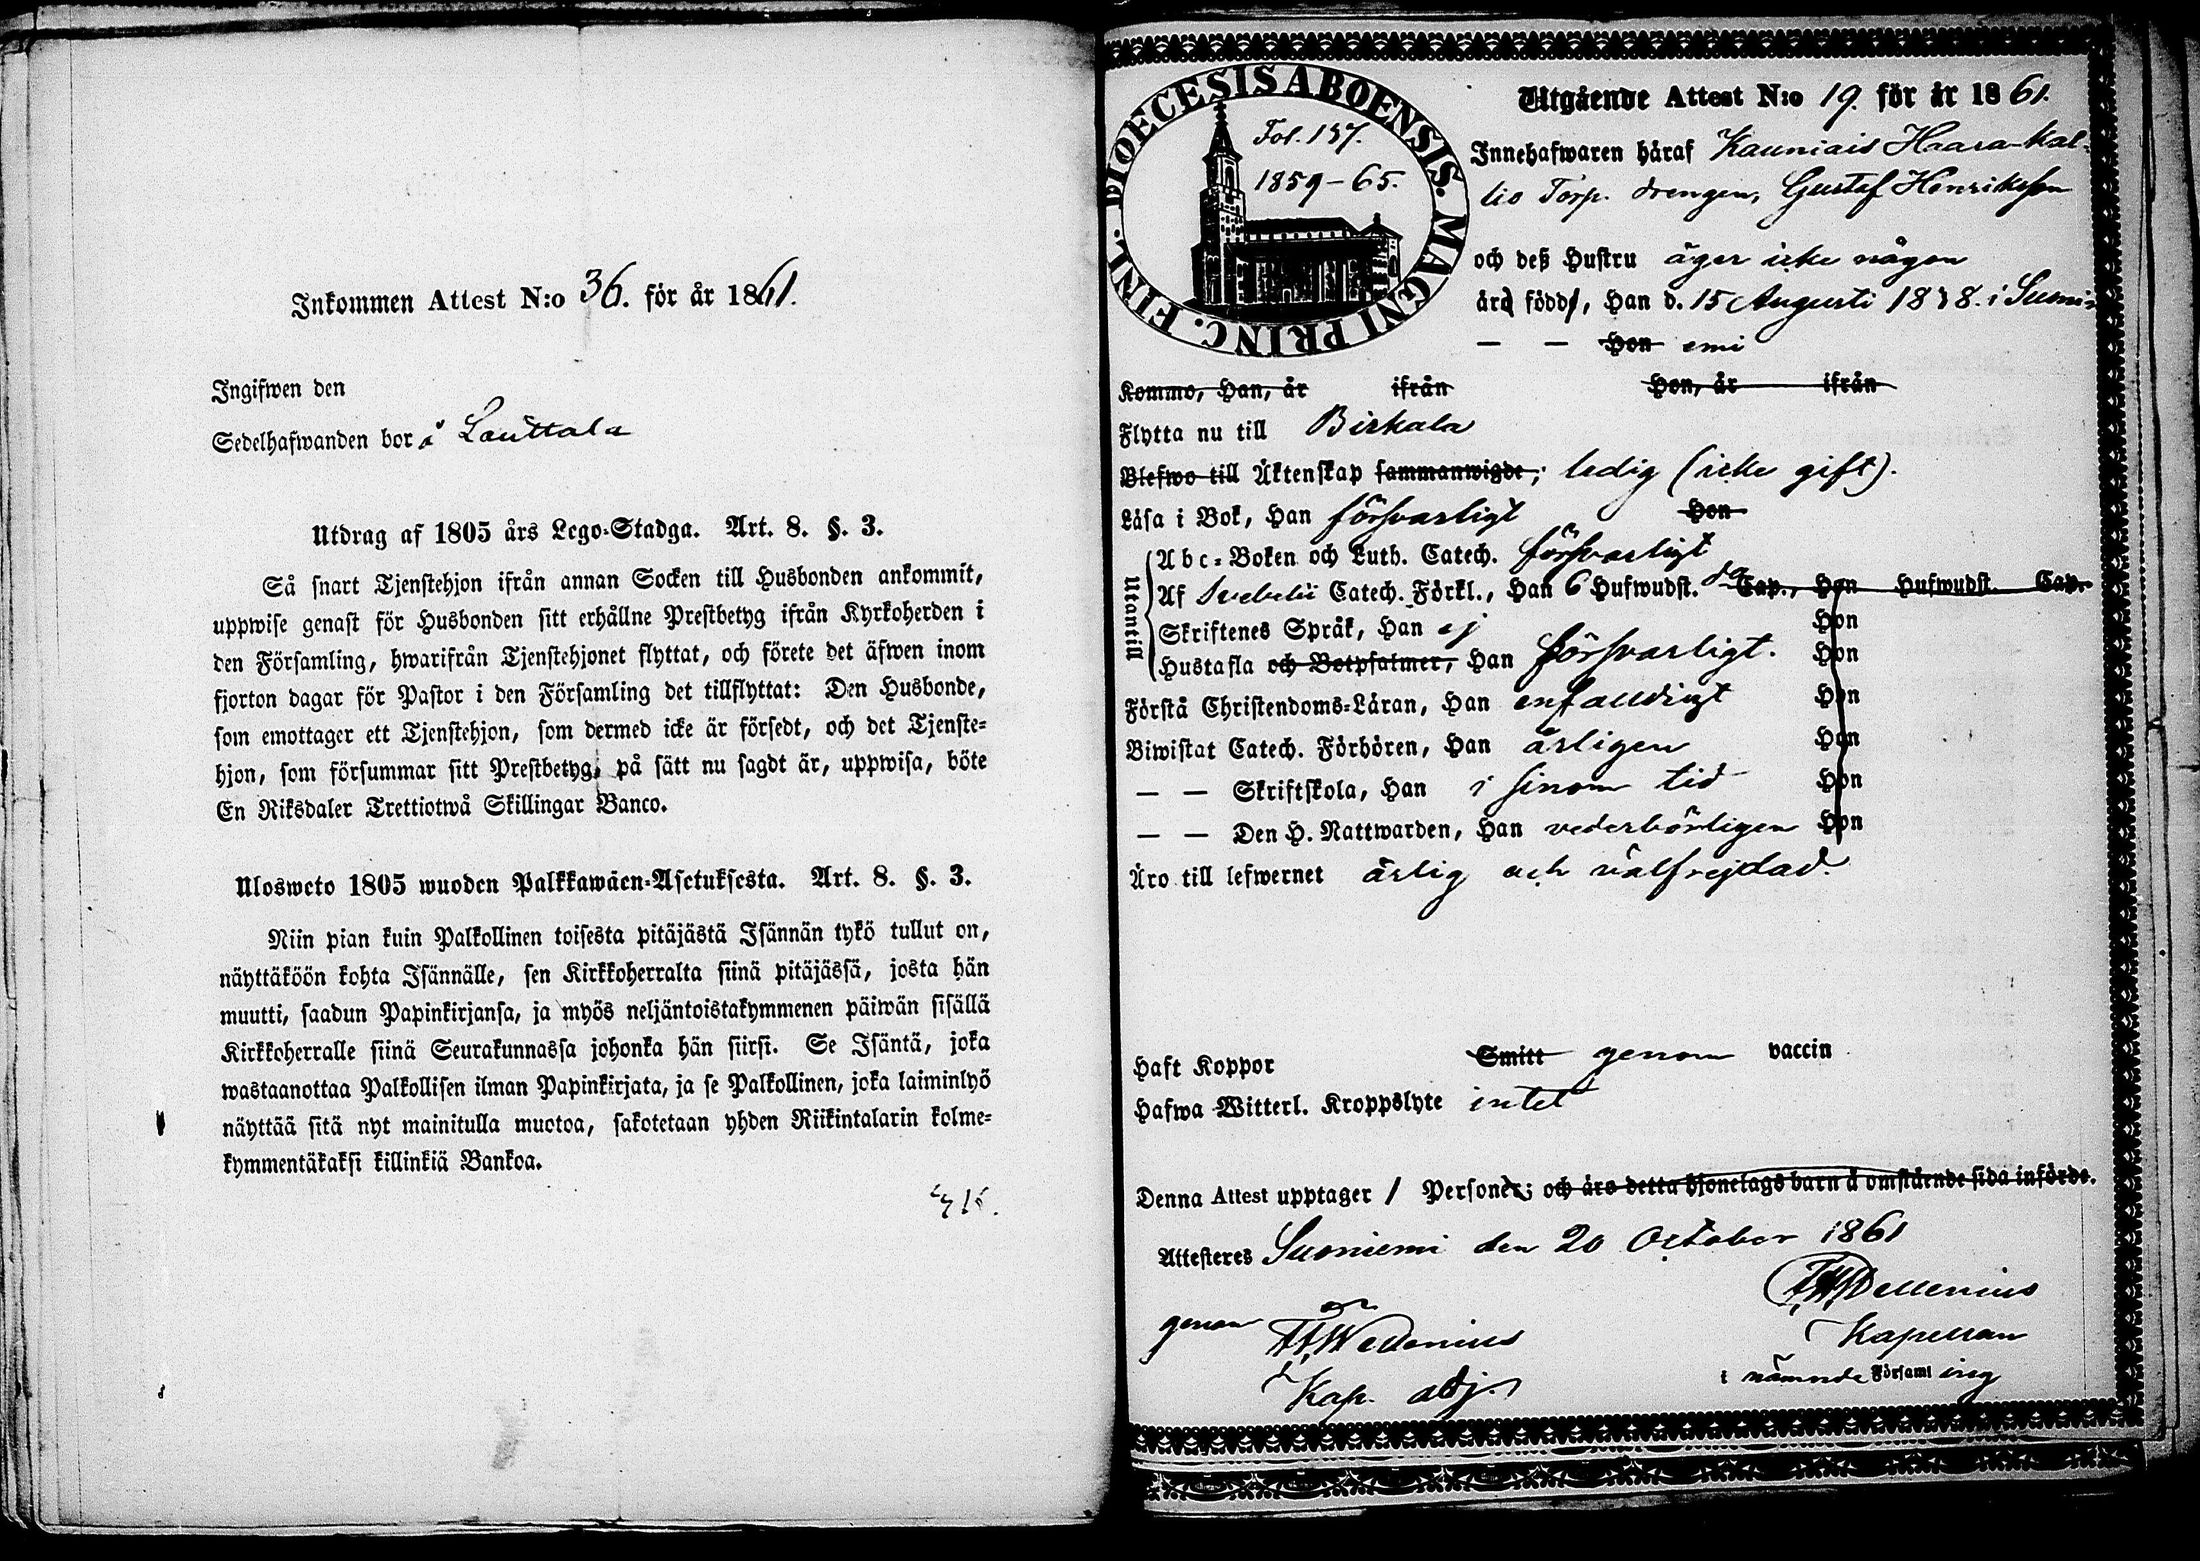 Inkommen Attest N:o 36. för år 1861.
Ingifwen den
Sedelhafwanden bor i Lauttala
Utdrag af 1805 års Lego-Stadga. Art. 8. §. 3.
Så snart Tjenstehjon ifrån annan Socken till Husbonden ankommit,
uppwise genast för Husbonden sitt erhållne Prestbetyg ifrån Kyrkoherden i
den Församling, hwarifrån Tjenstehjonet flyttat, och förete det äfwen inom
fjorton dagar för Pastor i den Församling det tillflyttat: Den Husbonde,
som emottager ett Tjenstehjon, som dermed icke är försedt, och det Tjenste-
hjon, som försummar sitt Prestbetyg, på sätt nu sagdt är, uppwisa, böte
En Riksdaler Trettiotwå Skillingar Banco.
Ulosweto 1805 wuoden Palkkawäen-Asetuksesta. Art. 8. §. 3.
Niin pian kuin Palkollinen toisesta pitäjästä Isännän tykö tullut on,
näyttäköön kohta Isännälle, sen Kirkkoherralta siinä pitäjässä, josta hän
muutti, saadun Papinkirjansa, ja myös neljäntoistakymmenen päiwän sisällä
Kirkkoherralle siinä Seurakunnassa johonka hän siirsi. Se Isäntä, joka
wastaanottaa Palkollisen ilman Papinkirjata, ja se Palkollinen, joka laiminlyö
näyttää sitä nyt mainitulla muotoa, sakotetaan yhden Riikintalarin kolme-
kymmentäkaksi killinkiä Bankoa.
DIOECESIS ABOENSIS. MAGNI PRINC. FINL.
Fol. 137.
1859-65.
Utgående Attest N:o 19. för år 1861.
Innehafwaren häraf Kauniais Haara-kal-
lio Torp. drengen, Gustaf Henriksson
och deß Hustru äger icke någon
äro födde, Han d. 15 Augusti 1838. i Suoni-
— — Hon emi
Kommo, Han, år ifrån Hon, år ifrån
Flytta nu till Birkala
Blefwo till Äktenskap sammanwigde; ledig (icke gift).
Läsa i Bok, Han försvarligt Hon
Utantill
Abc-Boken och Luth. Catech. försvarligt
Af Svebelii Catech. Förkl., Han 6 Hufwudst. Cap., Hon Hufwudst. Cap.
Skriftenes Språk, Han ej Hon
Hustafla och Botpsalmer, Han försvarligt. Hon
Förstå Christendoms-Läran, Han enfalldigt Hon
Biwistat Catech. Förhören, Han årligen Hon
— — Skriftskola, Han i sinom tid Hon
— — Den H. Nattwarden, Han vederbörligen Hon
Äro till lefwernet ärlig och välfrejdad.
Haft Koppor Smitt genom vaccin
Hafwa Witterl. Kroppslyte intet
Denna Attest upptager 1 Personer; och äro detta hjonelags barn å omstående sida införde.
Attesteres Suoniemi den 20 October 1861
Wellenius
Kapellan
i nämnde Församling
genom
Kap. adj.